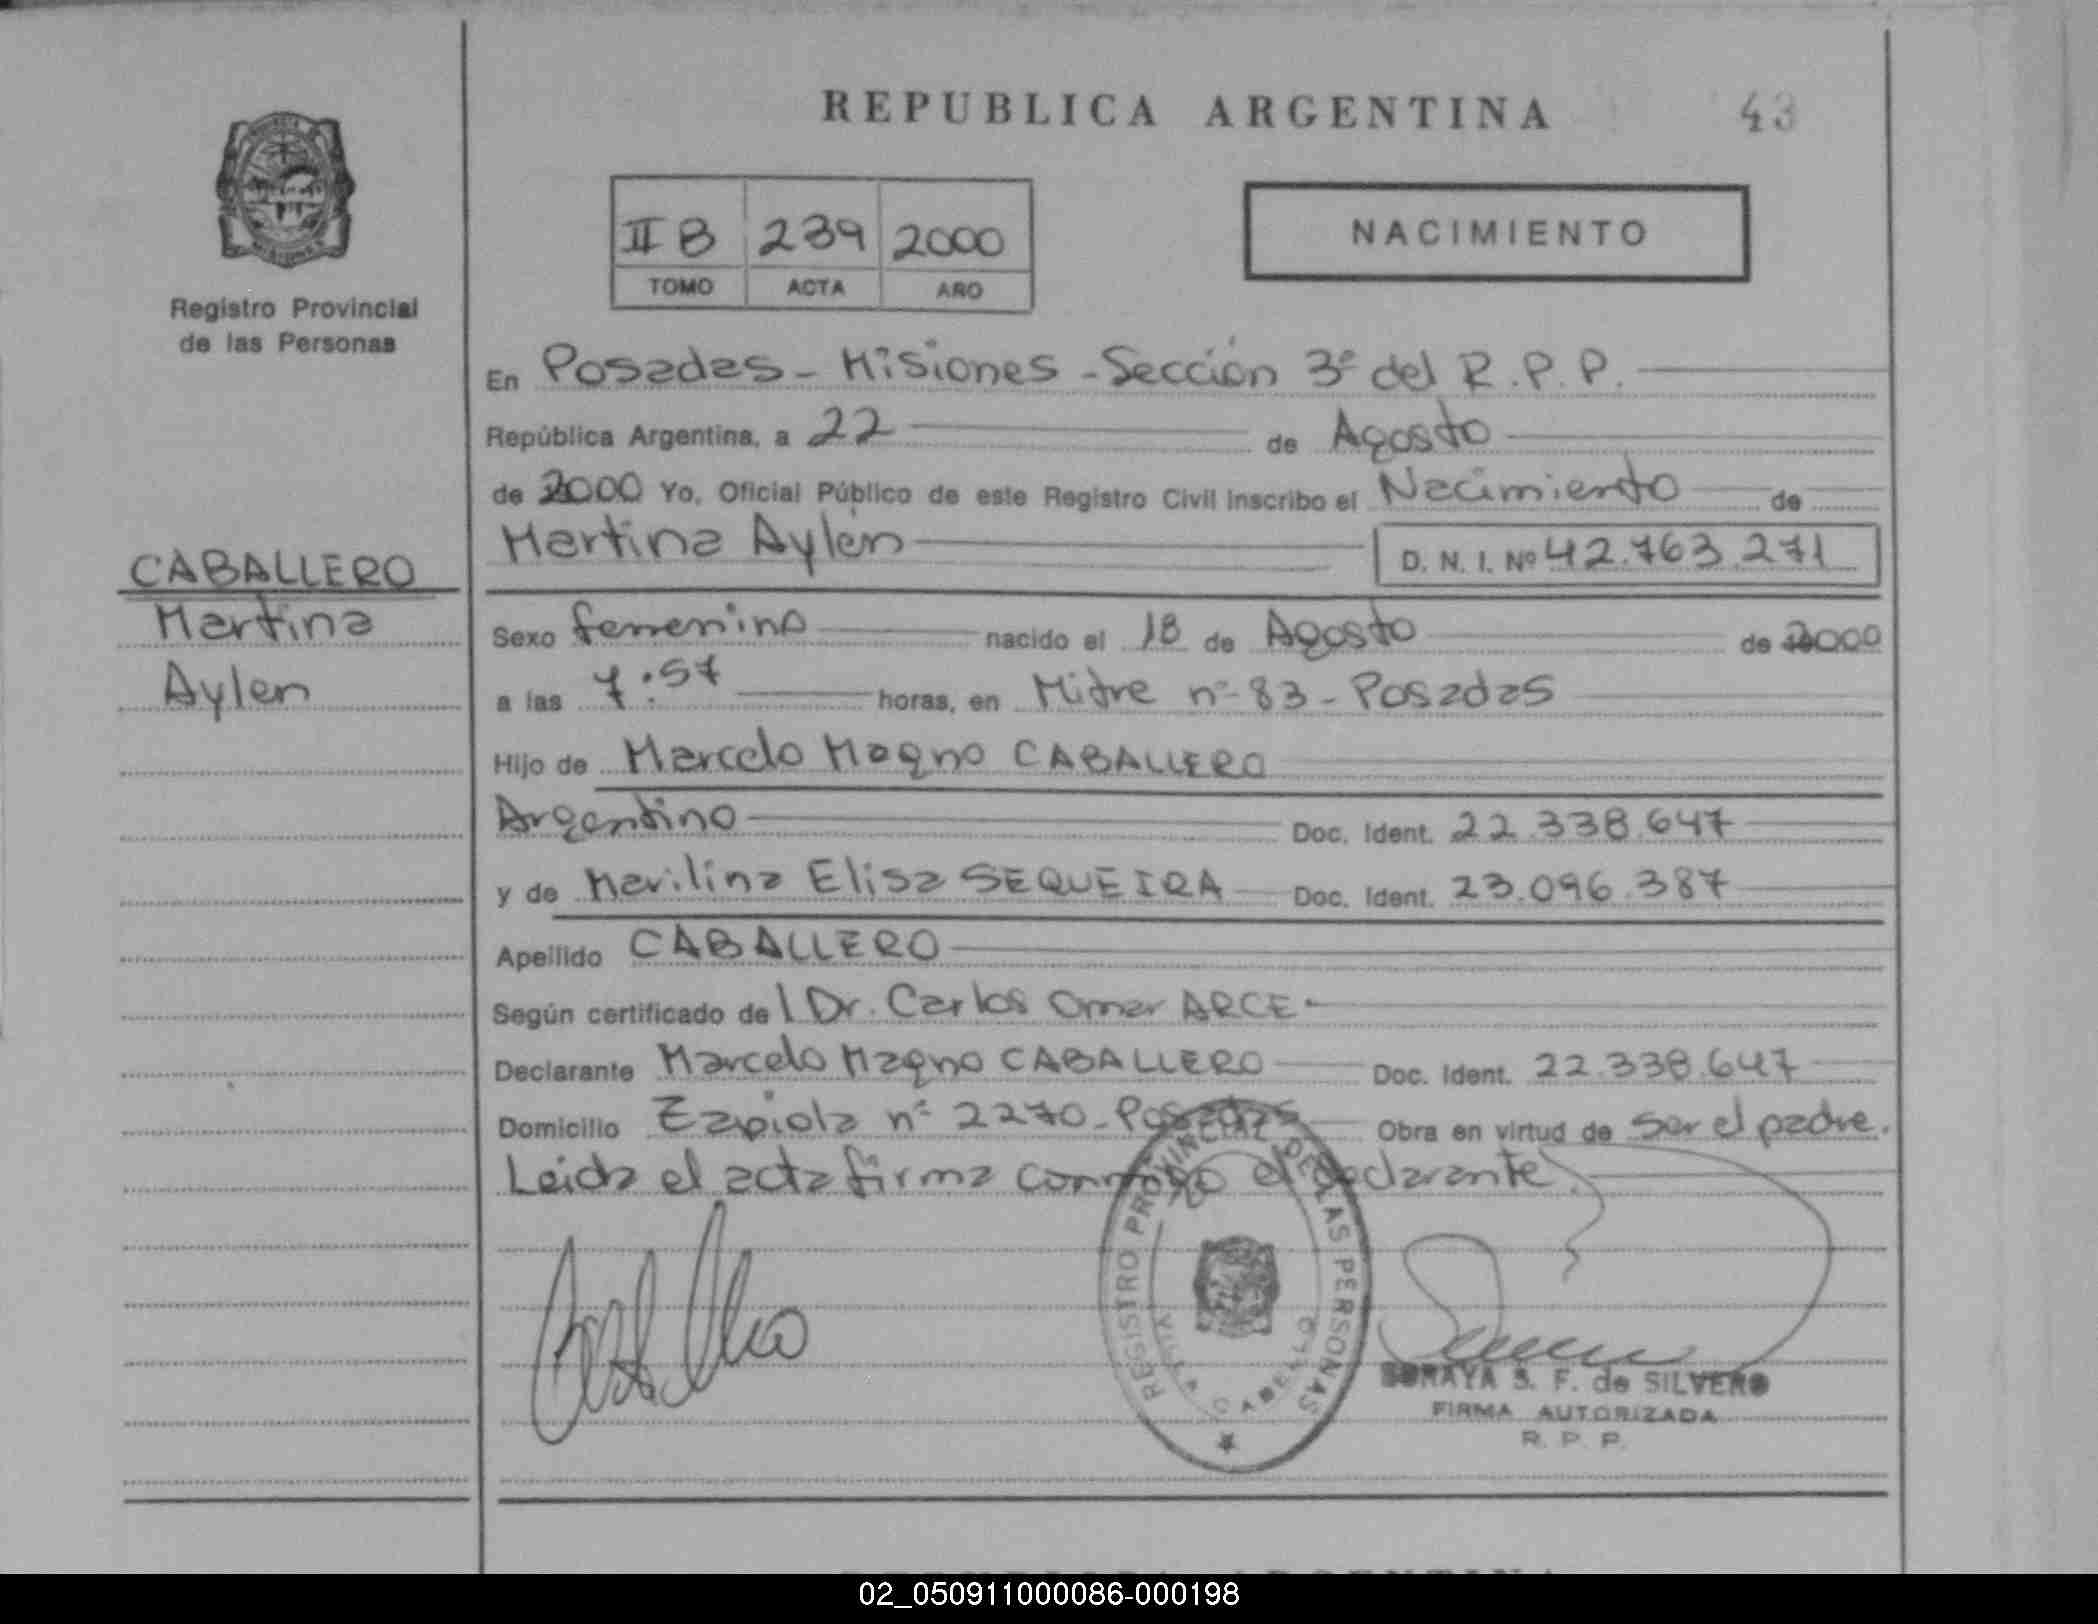 REPUBLICA ARGENTINA
43
Registro Provincial
de las Personas
II B 239 2000
TOMO ACTA AÑO
NACIMIENTO
En Posadas - Misiones - Sección 3ª del R.P.P.
República Argentina, a 22 de Agosto
de 2000 Yo, Oficial Público de este Registro Civil inscribo el Nacimiento de
Martina Aylén D. N. I. Nº 42.763.271
CABALLERO
Martina
Aylen
Sexo femenino nacido el 18 de Agosto de 2000
a las 7:57 horas, en Mitre nº 83 - Posadas
Hijo de Marcelo Magno CABALLERO
Argentino Doc. Ident. 22.338.647
y de Marilina Elisa SEQUEIRA Doc. Ident. 23.096.387
Apellido CABALLERO
Según certificado de l Dr. Carlos Omar ARCE.
Declarante Marcelo Magno CABALLERO Doc. Ident. 22.338.647
Domicilio Zapiola nº 2270 - Posadas Obra en virtud de ser el padre.
Leida el acta firma conmigo el declarante.
REGISTRO PROVINCIAL DE LAS PERSONAS
VILLA CABELLO
SORAYA S. F. de SILVERO
FIRMA AUTORIZADA
R. P. P.
02_050911000086-000198